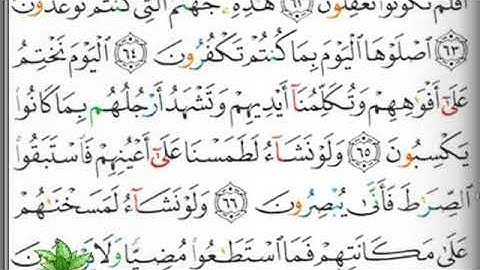 أَفَلَمْ تَكُونُوا۟ تَعْقِلُونَ ٦٢ هَـٰذِهِۦ جَهَنَّمُ ٱلَّتِى كُنتُمْ تُوعَدُونَ
٦٣ ٱصْلَوْهَا ٱلْيَوْمَ بِمَا كُنتُمْ تَكْفُرُونَ ٦٤ ٱلْيَوْمَ نَخْتِمُ
عَلَىٰٓ أَفْوَٰهِهِمْ وَتُكَلِّمُنَآ أَيْدِيهِمْ وَتَشْهَدُ أَرْجُلُهُم بِمَا كَانُوا۟
يَكْسِبُونَ ٦٥ وَلَوْ نَشَآءُ لَطَمَسْنَا عَلَىٰٓ أَعْيُنِهِمْ فَٱسْتَبَقُوا۟
ٱلصِّرَٰطَ فَأَنَّىٰ يُبْصِرُونَ ٦٦ وَلَوْ نَشَآءُ لَمَسَخْنَـٰهُمْ
عَلَىٰ مَكَانَتِهِمْ فَمَا ٱسْتَطَـٰعُوا۟ مُضِيًّا وَلَا